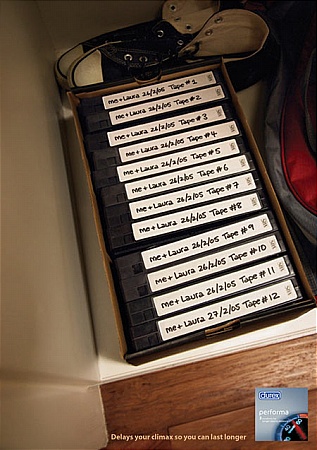 me + Laura 26/2/05 Tape #1
me + Laura 26/2/05 Tape #2
me + Laura 26/2/05 Tape #3
me + Laura 26/2/05 Tape #4
me + Laura 26/2/05 Tape #5
me + Laura 26/2/05 Tape #6
me + Laura 26/2/05 Tape #7
me + Laura 26/2/05 Tape #8
me + Laura 26/2/05 Tape #9
me + Laura 26/2/05 Tape #10
me + Laura 26/2/05 Tape #11
me + Laura 27/2/05 Tape #12
Delays your climax so you can last longer
durex
performa